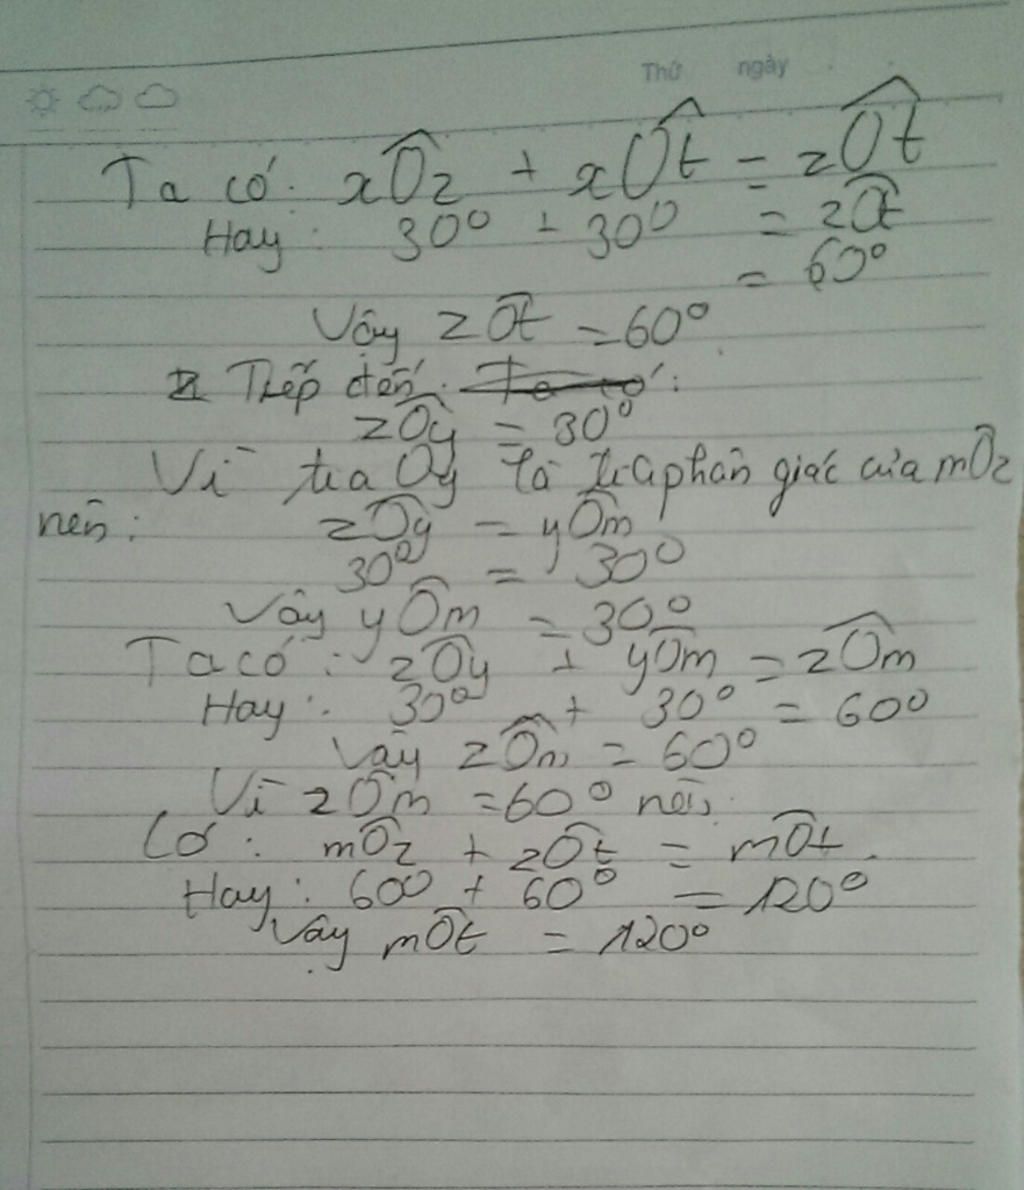 Thứ ngày
Ta có: xÔz + xÔt = zÔt
Hay: 30° + 30° = zÔt
= 60°
Vậy zÔt = 60°
Tiếp đến:
zÔy = 30°
Vì tia Oy là tia phân giác của mÔz
nên: zÔy = yÔm
30° = 30°
Vậy yÔm = 30°
Ta có: zÔy + yÔm = zÔm
Hay: 30° + 30° = 60°
Vậy zÔm = 60°
Vì zÔm = 60° nên
Có: mÔz + zÔt = mÔt
Hay: 60° + 60° = 120°
Vậy mÔt = 120°